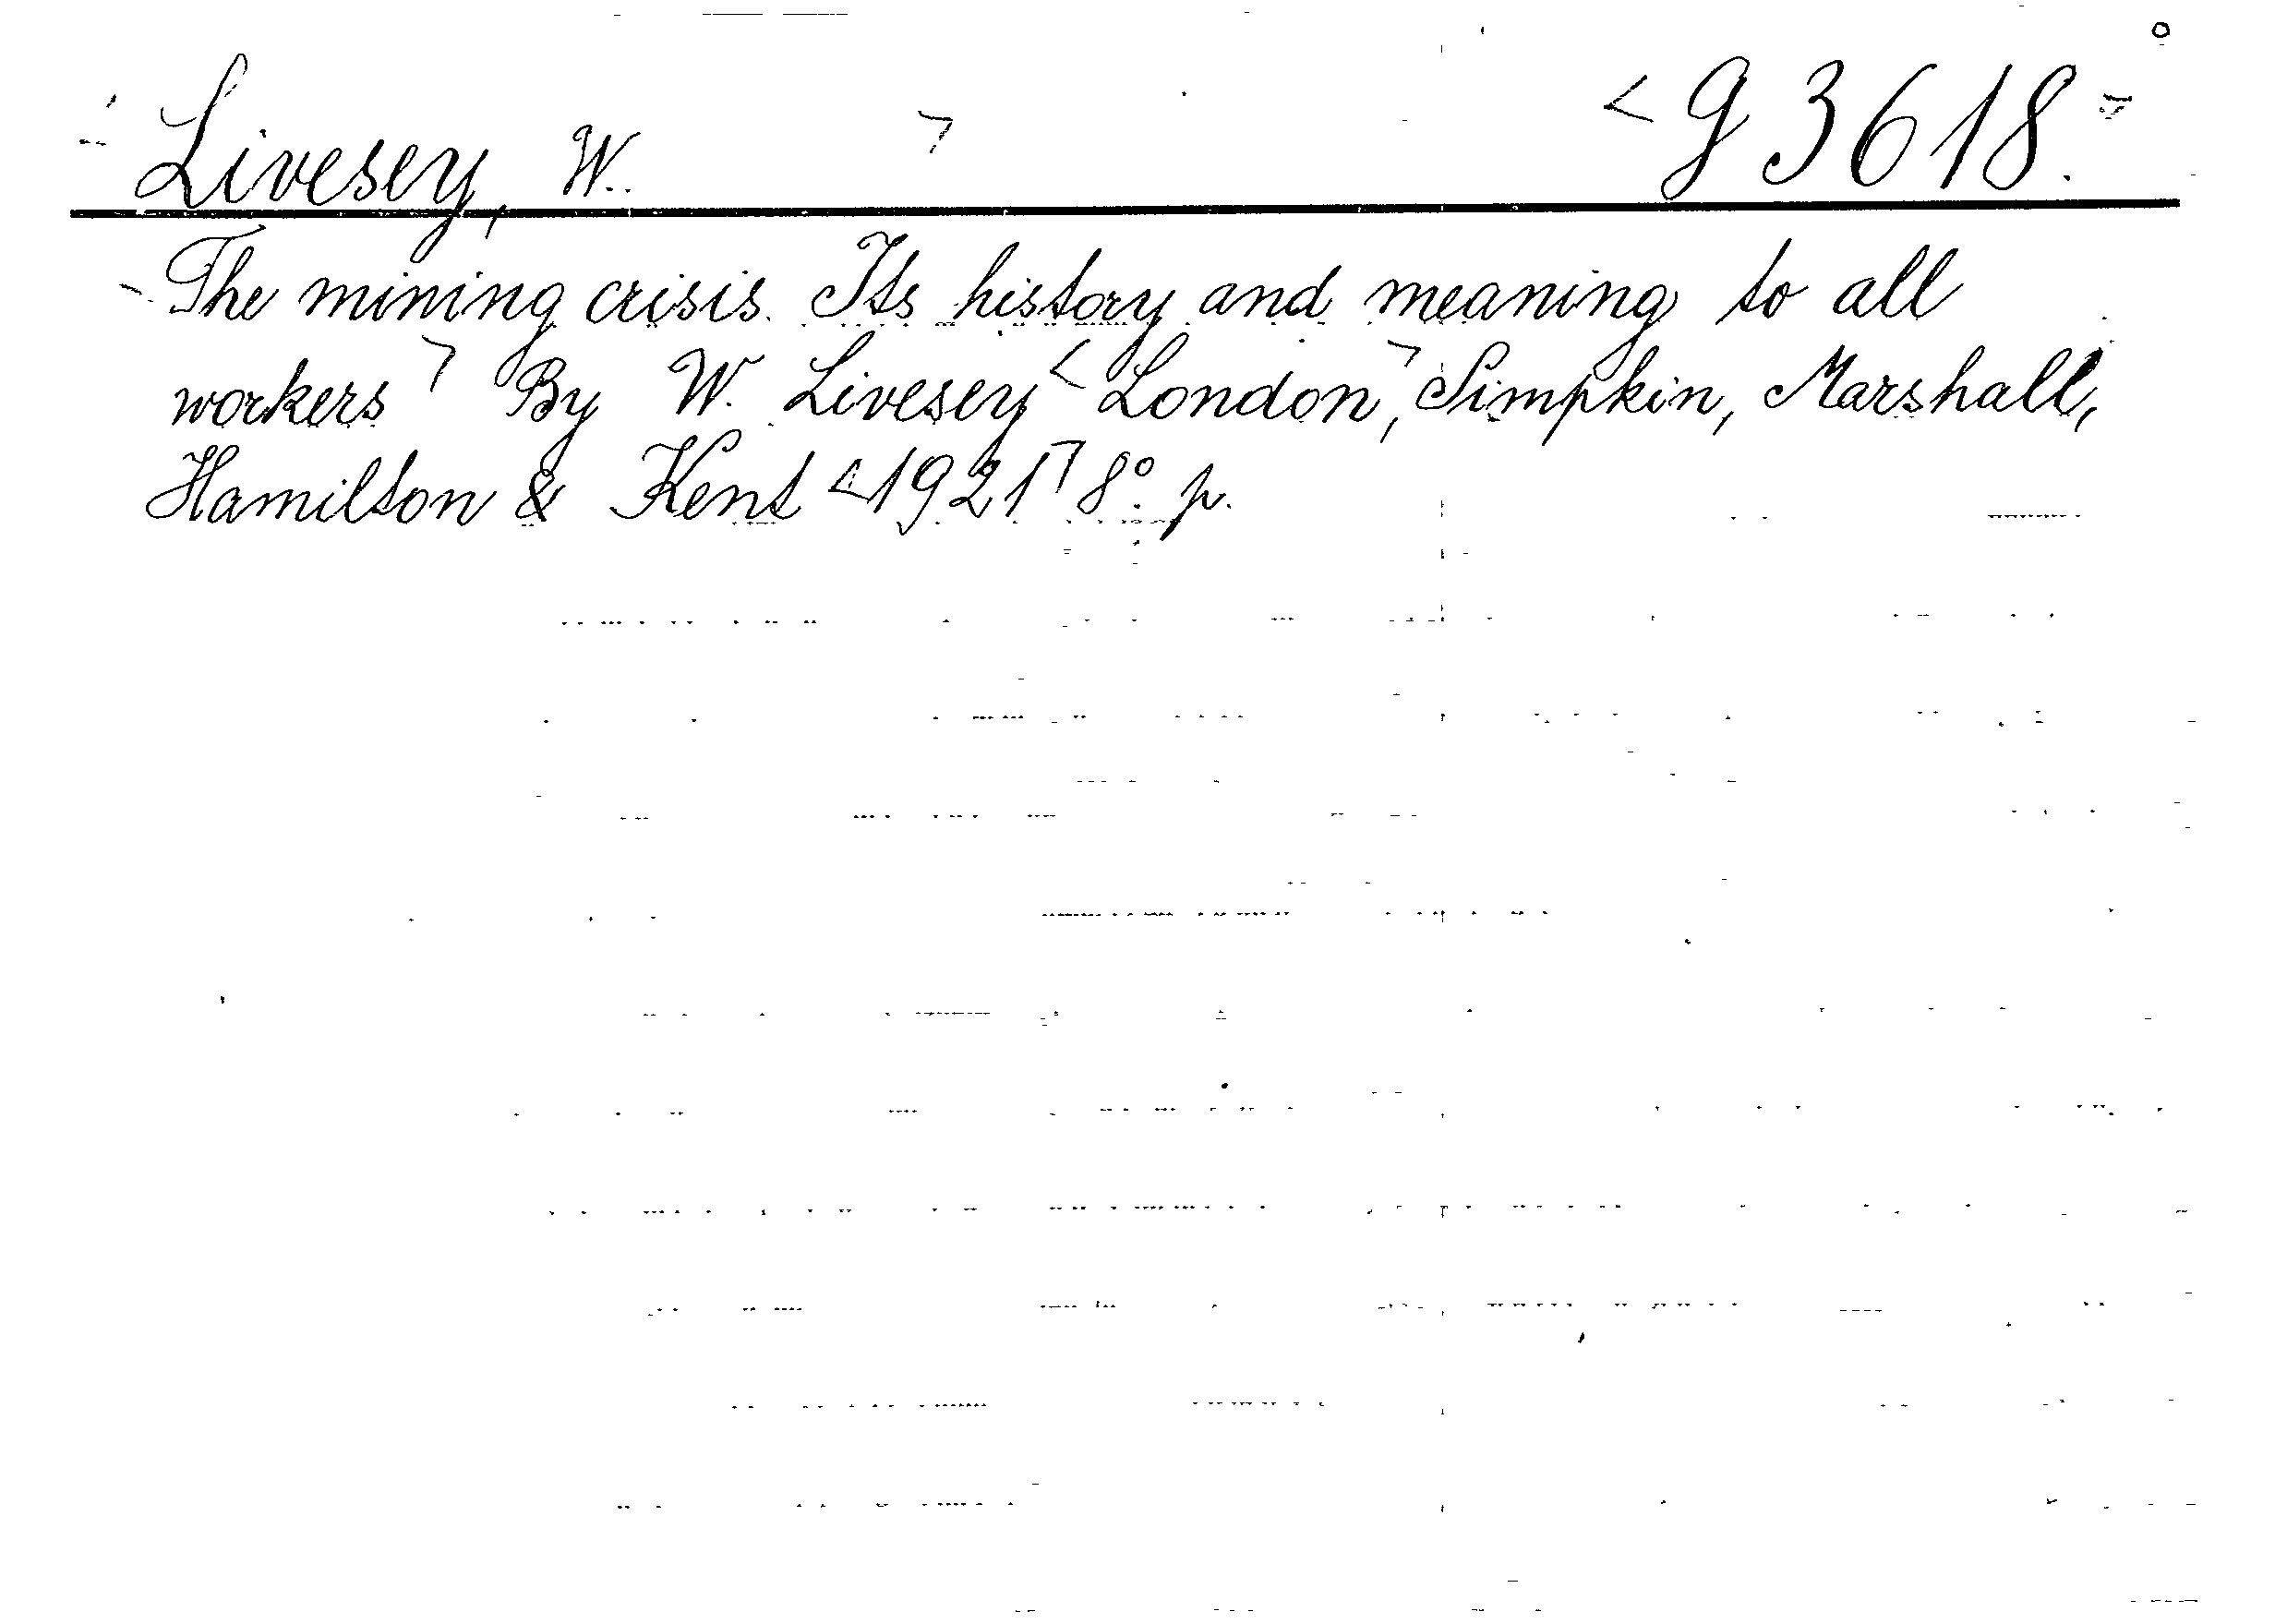 Livesey, W. g 3618.
The mining crisis. Its history and meaning to all
workers By W. Livesey London, Simpkin, Marshall,
Hamilton & Kent 1921 8° p.